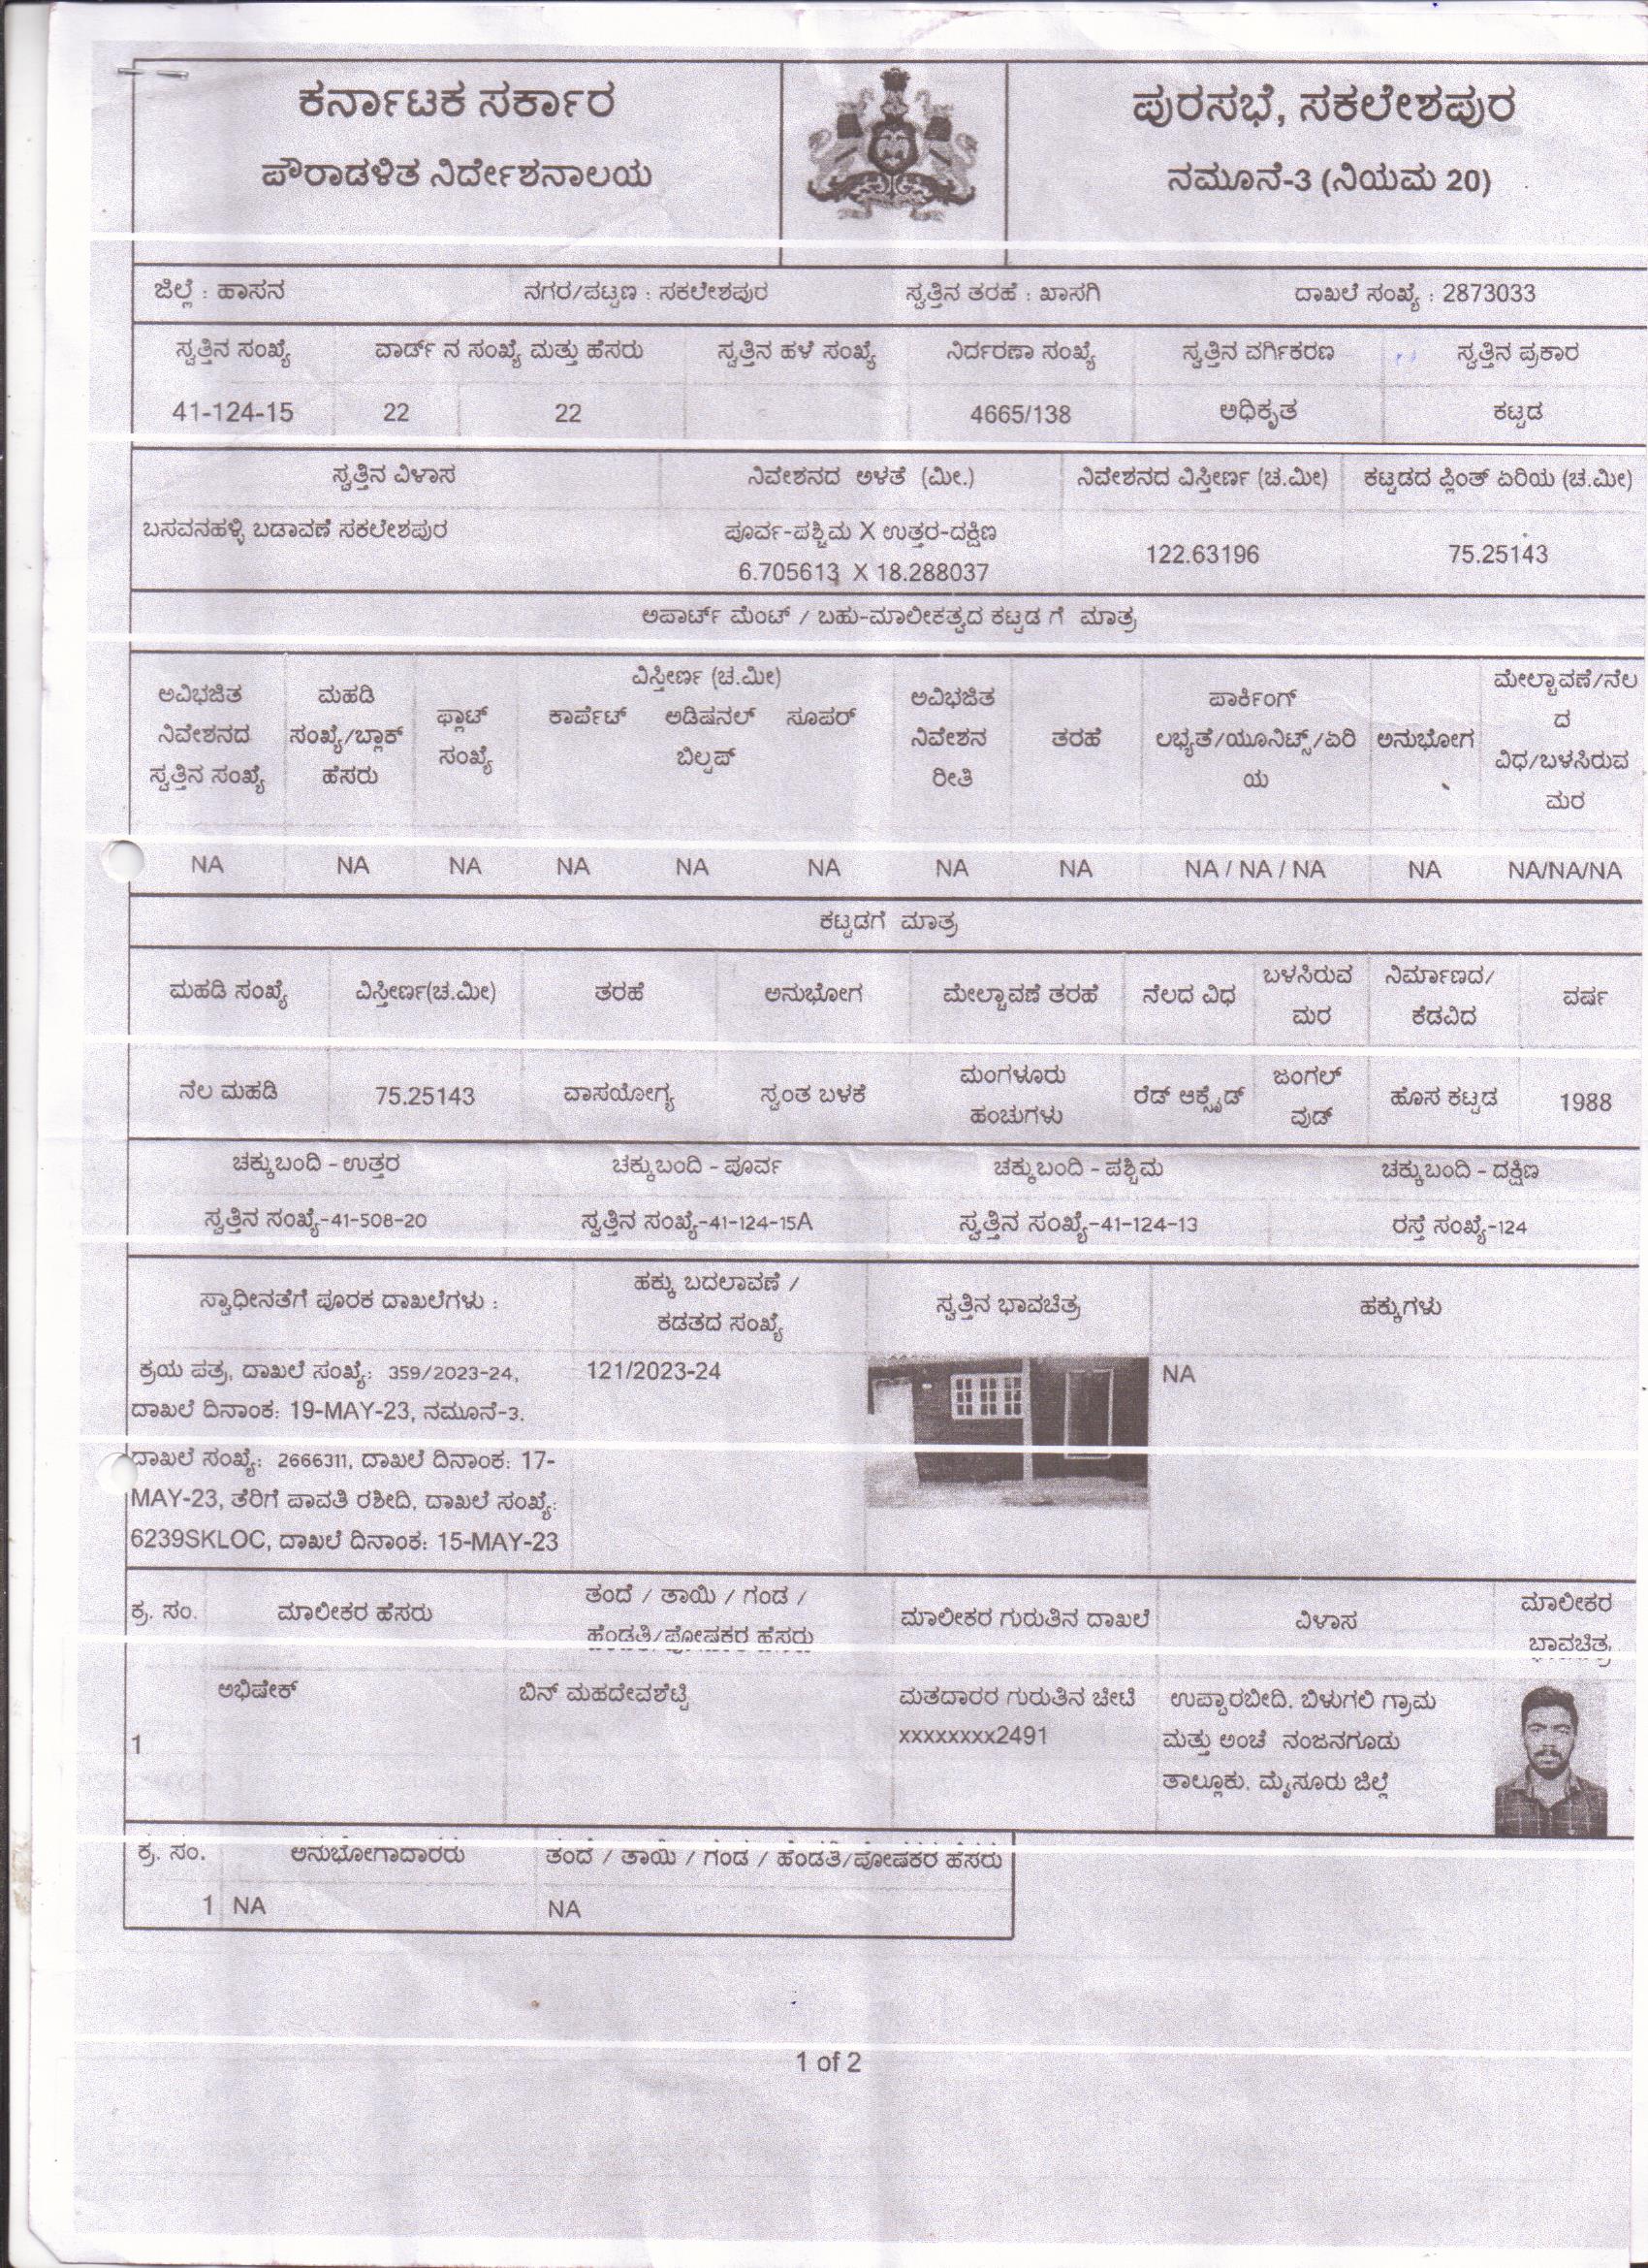 ಕರ್ನಾಟಕ ಸರ್ಕಾರ
ಪೌರಾಡಳಿತ ನಿರ್ದೇಶನಾಲಯ
ಪುರಸಭೆ, ಸಕಲೇಶಪುರ
ನಮೂನೆ-3 (ನಿಯಮ 20)
ಜಿಲ್ಲೆ : ಹಾಸನ ನಗರ/ಪಟ್ಟಣ : ಸಕಲೇಶಪುರ ಸ್ವತ್ತಿನ ತರಹೆ : ಖಾಸಗಿ ದಾಖಲೆ ಸಂಖ್ಯೆ : 2873033
ಸ್ವತ್ತಿನ ಸಂಖ್ಯೆ ವಾರ್ಡ್ ನ ಸಂಖ್ಯೆ ಮತ್ತು ಹೆಸರು ಸ್ವತ್ತಿನ ಹಳೆ ಸಂಖ್ಯೆ ನಿರ್ದರಣಾ ಸಂಖ್ಯೆ ಸ್ವತ್ತಿನ ವರ್ಗಿಕರಣ ಸ್ವತ್ತಿನ ಪ್ರಕಾರ
41-124-15 22 22 4665/138 ಅಧಿಕೃತ ಕಟ್ಟಡ
ಸ್ವತ್ತಿನ ವಿಳಾಸ ನಿವೇಶನದ ಅಳತೆ (ಮೀ.) ನಿವೇಶನದ ವಿಸ್ತೀರ್ಣ (ಚ.ಮೀ) ಕಟ್ಟಡದ ಪ್ಲಿಂತ್ ಏರಿಯ (ಚ.ಮೀ)
ಬಸವನಹಳ್ಳಿ ಬಡಾವಣೆ ಸಕಲೇಶಪುರ ಪೂರ್ವ-ಪಶ್ಚಿಮ X ಉತ್ತರ-ದಕ್ಷಿಣ
6.705613 X 18.288037 122.63196 75.25143
ಅಪಾರ್ಟ್ ಮೆಂಟ್ / ಬಹು-ಮಾಲೀಕತ್ವದ ಕಟ್ಟಡ ಗೆ ಮಾತ್ರ
ಅವಿಭಜಿತ
ನಿವೇಶನದ
ಸ್ವತ್ತಿನ ಸಂಖ್ಯೆ
ಮಹಡಿ
ಸಂಖ್ಯೆ/ಬ್ಲಾಕ್
ಹೆಸರು
ಫ್ಲಾಟ್
ಸಂಖ್ಯೆ
ವಿಸ್ತೀರ್ಣ (ಚ.ಮೀ)
ಕಾರ್ಪೆಟ್ ಅಡಿಷನಲ್ ಸೂಪರ್
ಬಿಲ್ಟಪ್
ಅವಿಭಜಿತ
ನಿವೇಶನ
ರೀತಿ
ತರಹೆ
ಪಾರ್ಕಿಂಗ್
ಲಭ್ಯತೆ/ಯೂನಿಟ್ಸ್/ಏರಿ
ಯ
ಅನುಭೋಗ
ಮೇಲ್ಚಾವಣೆ/ನೆಲ
ದ
ವಿಧ/ಬಳಸಿರುವ
ಮರ
NA NA NA NA NA NA NA NA NA / NA / NA NA NA/NA/NA
ಕಟ್ಟಡಗೆ ಮಾತ್ರ
ಮಹಡಿ ಸಂಖ್ಯೆ ವಿಸ್ತೀರ್ಣ(ಚ.ಮೀ) ತರಹೆ ಅನುಭೋಗ ಮೇಲ್ಚಾವಣೆ ತರಹೆ ನೆಲದ ವಿಧ
ಬಳಸಿರುವ
ಮರ
ನಿರ್ಮಾಣದ/
ಕೆಡವಿದ
ವರ್ಷ
ನೆಲ ಮಹಡಿ 75.25143 ವಾಸಯೋಗ್ಯ ಸ್ವಂತ ಬಳಕೆ
ಮಂಗಳೂರು
ಹಂಚುಗಳು
ರೆಡ್ ಆಕ್ಸೈಡ್
ಜಂಗಲ್
ವುಡ್
ಹೊಸ ಕಟ್ಟಡ 1988
ಚಕ್ಕುಬಂದಿ - ಉತ್ತರ ಚಕ್ಕುಬಂದಿ - ಪೂರ್ವ ಚಕ್ಕುಬಂದಿ - ಪಶ್ಚಿಮ ಚಕ್ಕುಬಂದಿ - ದಕ್ಷಿಣ
ಸ್ವತ್ತಿನ ಸಂಖ್ಯೆ-41-508-20 ಸ್ವತ್ತಿನ ಸಂಖ್ಯೆ-41-124-15A ಸ್ವತ್ತಿನ ಸಂಖ್ಯೆ-41-124-13 ರಸ್ತೆ ಸಂಖ್ಯೆ-124
ಸ್ವಾಧೀನತೆಗೆ ಪೂರಕ ದಾಖಲೆಗಳು :
ಹಕ್ಕು ಬದಲಾವಣೆ /
ಕಡತದ ಸಂಖ್ಯೆ
ಸ್ವತ್ತಿನ ಭಾವಚಿತ್ರ ಹಕ್ಕುಗಳು
ಕ್ರಯ ಪತ್ರ, ದಾಖಲೆ ಸಂಖ್ಯೆ: 359/2023-24, 121/2023-24 NA
ದಾಖಲೆ ದಿನಾಂಕ: 19-MAY-23, ನಮೂನೆ-3.
ದಾಖಲೆ ಸಂಖ್ಯೆ: 2666311, ದಾಖಲೆ ದಿನಾಂಕ: 17-
MAY-23, ತೆರಿಗೆ ಪಾವತಿ ರಶೀದಿ, ದಾಖಲೆ ಸಂಖ್ಯೆ:
6239SKLOC, ದಾಖಲೆ ದಿನಾಂಕ: 15-MAY-23
ಕ್ರ. ಸಂ. ಮಾಲೀಕರ ಹೆಸರು
ತಂದೆ / ತಾಯಿ / ಗಂಡ /
ಹೆಂಡತಿ/ಪೋಷಕರ ಹೆಸರು
ಮಾಲೀಕರ ಗುರುತಿನ ದಾಖಲೆ ವಿಳಾಸ
ಮಾಲೀಕರ
ಭಾವಚಿತ್ರ
1 ಅಭಿಷೇಕ್ ಬಿನ್ ಮಹದೇವಶೆಟ್ಟಿ
ಮತದಾರರ ಗುರುತಿನ ಚೀಟಿ
xxxxxxxx2491
ಉಪ್ಪಾರಬೀದಿ. ಬಿಳುಗಲಿ ಗ್ರಾಮ
ಮತ್ತು ಅಂಚೆ ನಂಜನಗೂಡು
ತಾಲ್ಲೂಕು. ಮೈಸೂರು ಜಿಲ್ಲೆ
ಕ್ರ. ಸಂ. ಅನುಭೋಗಾದಾರರು ತಂದೆ / ತಾಯಿ / ಗಂಡ / ಹೆಂಡತಿ/ಪೋಷಕರ ಹೆಸರು
1 NA NA
1 of 2